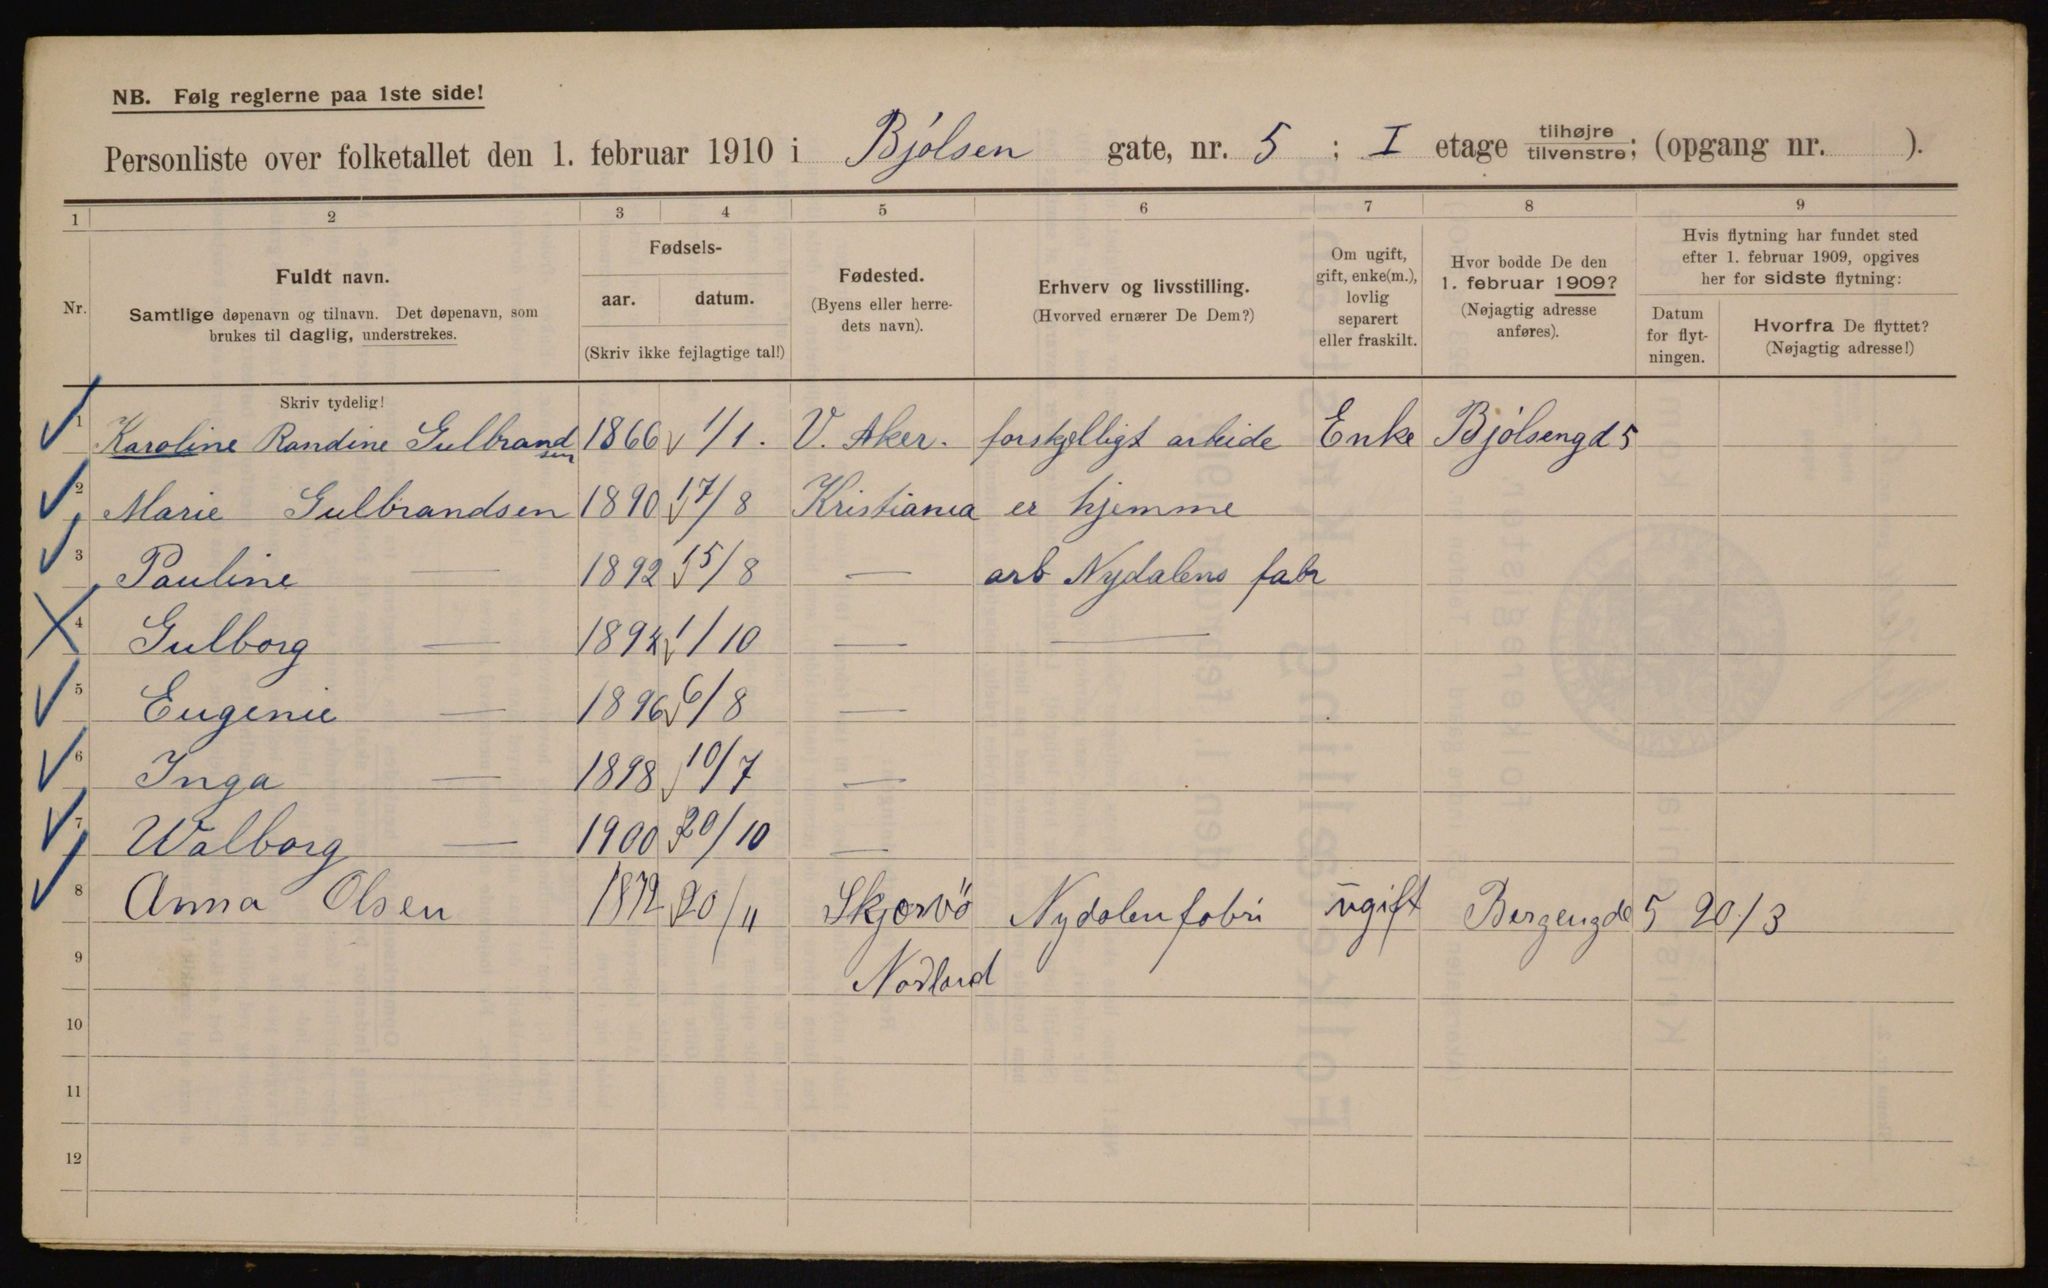 NB. Følg reglerne paa 1ste side!
Personliste over folketallet den 1. februar 1910 i Bjølsen gate, nr. 5 ; I etage tilhøjre/tilvenstre; (opgang nr. ).
1 2 3 4 5 6 7 8 9
Nr.
Fuldt navn.
Samtlige døpenavn og tilnavn. Det døpenavn, som
brukes til daglig, understrekes.
Fødsels-
aar. datum.
(Skriv ikke fejlagtige tal!)
Fødested.
(Byens eller herre-
dets navn).
Erhverv og livsstilling.
(Hvorved ernærer De Dem?)
Om ugift,
gift, enke(m.),
lovlig
separert
eller fraskilt.
Hvor bodde De den
1. februar 1909?
(Nøjagtig adresse
anføres).
Hvis flytning har fundet sted
efter 1. februar 1909, opgives
her for sidste flytning:
Datum
for flyt-
ningen.
Hvorfra De flyttet?
(Nøjagtig adresse!)
Skriv tydelig!
1 Karoline Randine Gulbrandsen 1866 1/1. V. Aker. forskjelligt arbeide Enke Bjölsengd 5
2 Marie Gulbrandsen 1890 17/8 Kristiania er hjemme
3 Pauline — 1892 15/8 — arb Nydalens fabr
4 Gulborg — 1894 1/10 — —
5 Eugenie — 1896 6/8 —
6 Inga — 1898 10/7 —
7 Walborg — 1900 20/10 —
8 Anna Olsen 1872 20/11 Skjærvö Nydalen fabri ugift Bergengde 5 20/3
9 Nordland
10
11
12